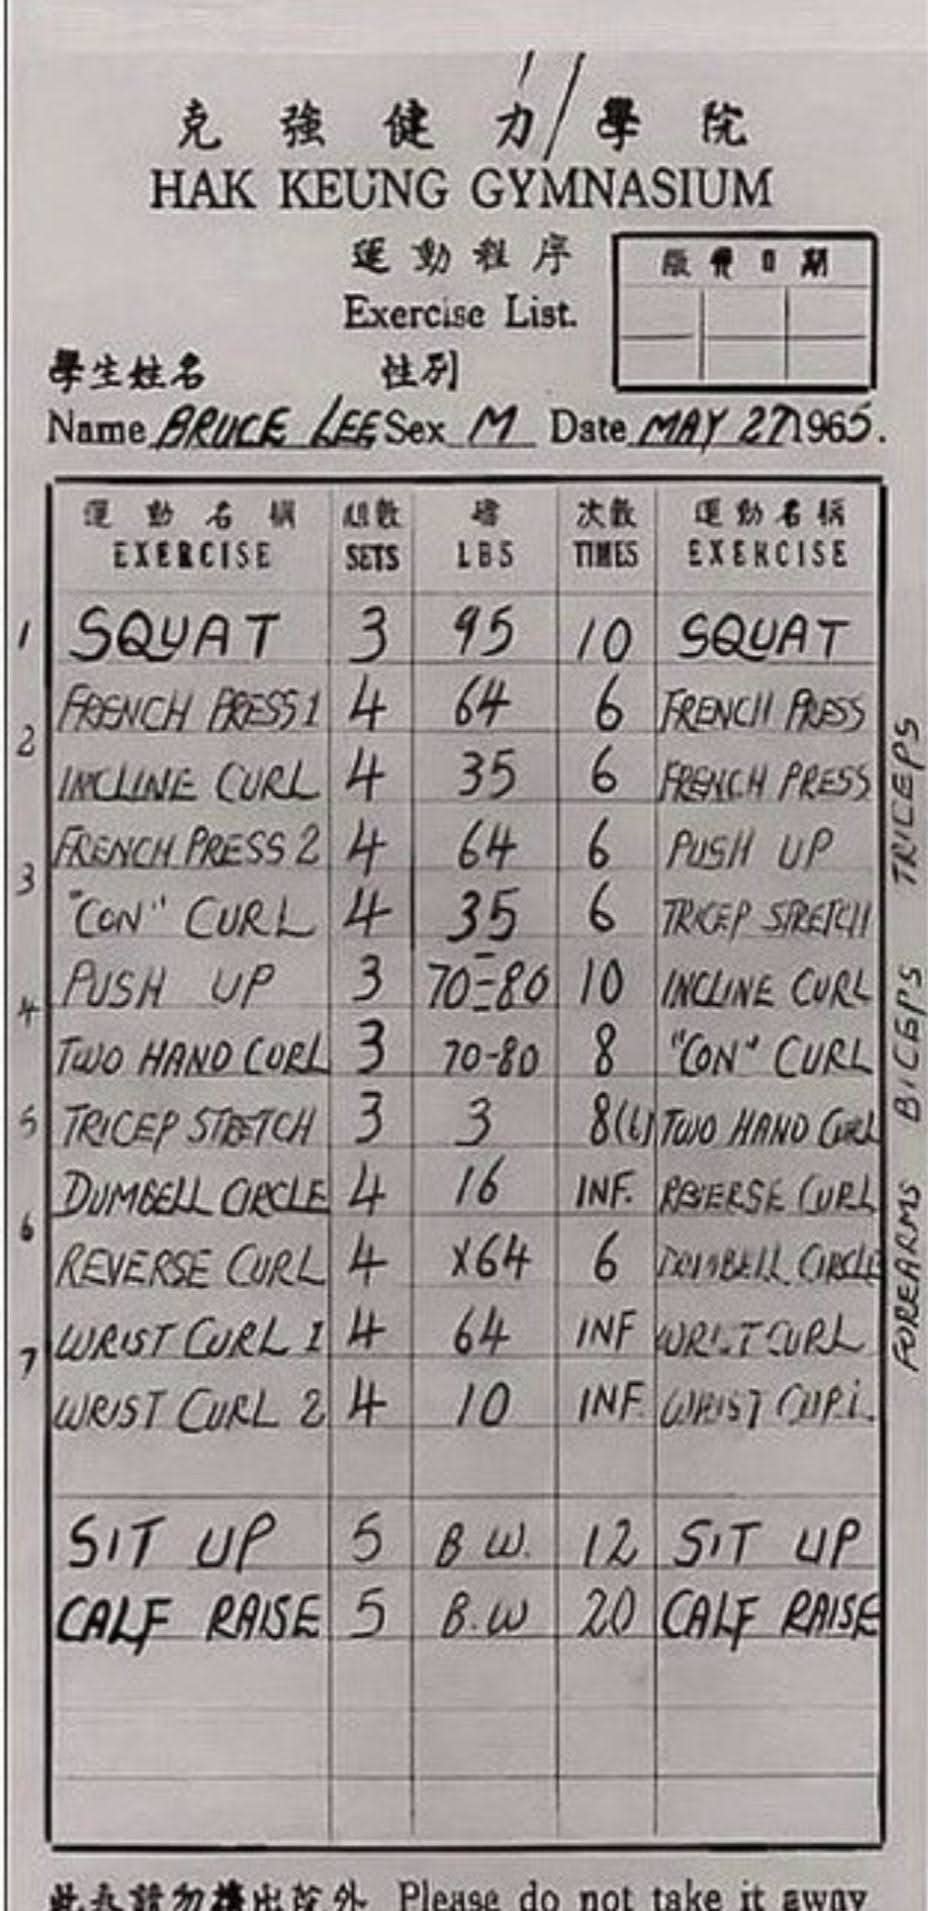 克強健力學院
HAK KEUNG GYMNASIUM
運動程序
Exercise List.
繳費日期
學生姓名 性別
Name BRUCE LEE Sex M Date MAY 27 1965.
運動名稱 組數 磅 次數 運動名稱
EXERCISE SETS LBS TIMES EXERCISE
1 SQUAT 3 95 10 SQUAT
FRENCH PRESS 1 4 64 6 FRENCH PRESS
2
INCLINE CURL 4 35 6 FRENCH PRESS
FRENCH PRESS 2 4 64 6 PUSH UP
3
"CON" CURL 4 35 6 TRICEP STRETCH
PUSH UP 3 70-80 10 INCLINE CURL
4
TWO HAND CURL 3 70-80 8 "CON" CURL
5 TRICEP STRETCH 3 3 8(6) TWO HAND CURL
DUMBELL CIRCLE 4 16 INF. REVERSE CURL
6
REVERSE CURL 4 X64 6 DUMBELL CIRCLE
WRIST CURL 1 4 64 INF WRIST CURL
7
WRIST CURL 2 4 10 INF. WRIST CURL
SIT UP 5 B.W. 12 SIT UP
CALF RAISE 5 B.W 20 CALF RAISE
TRICEPS
BICEPS
FOREARMS
此表請勿攜出院外 Please do not take it away